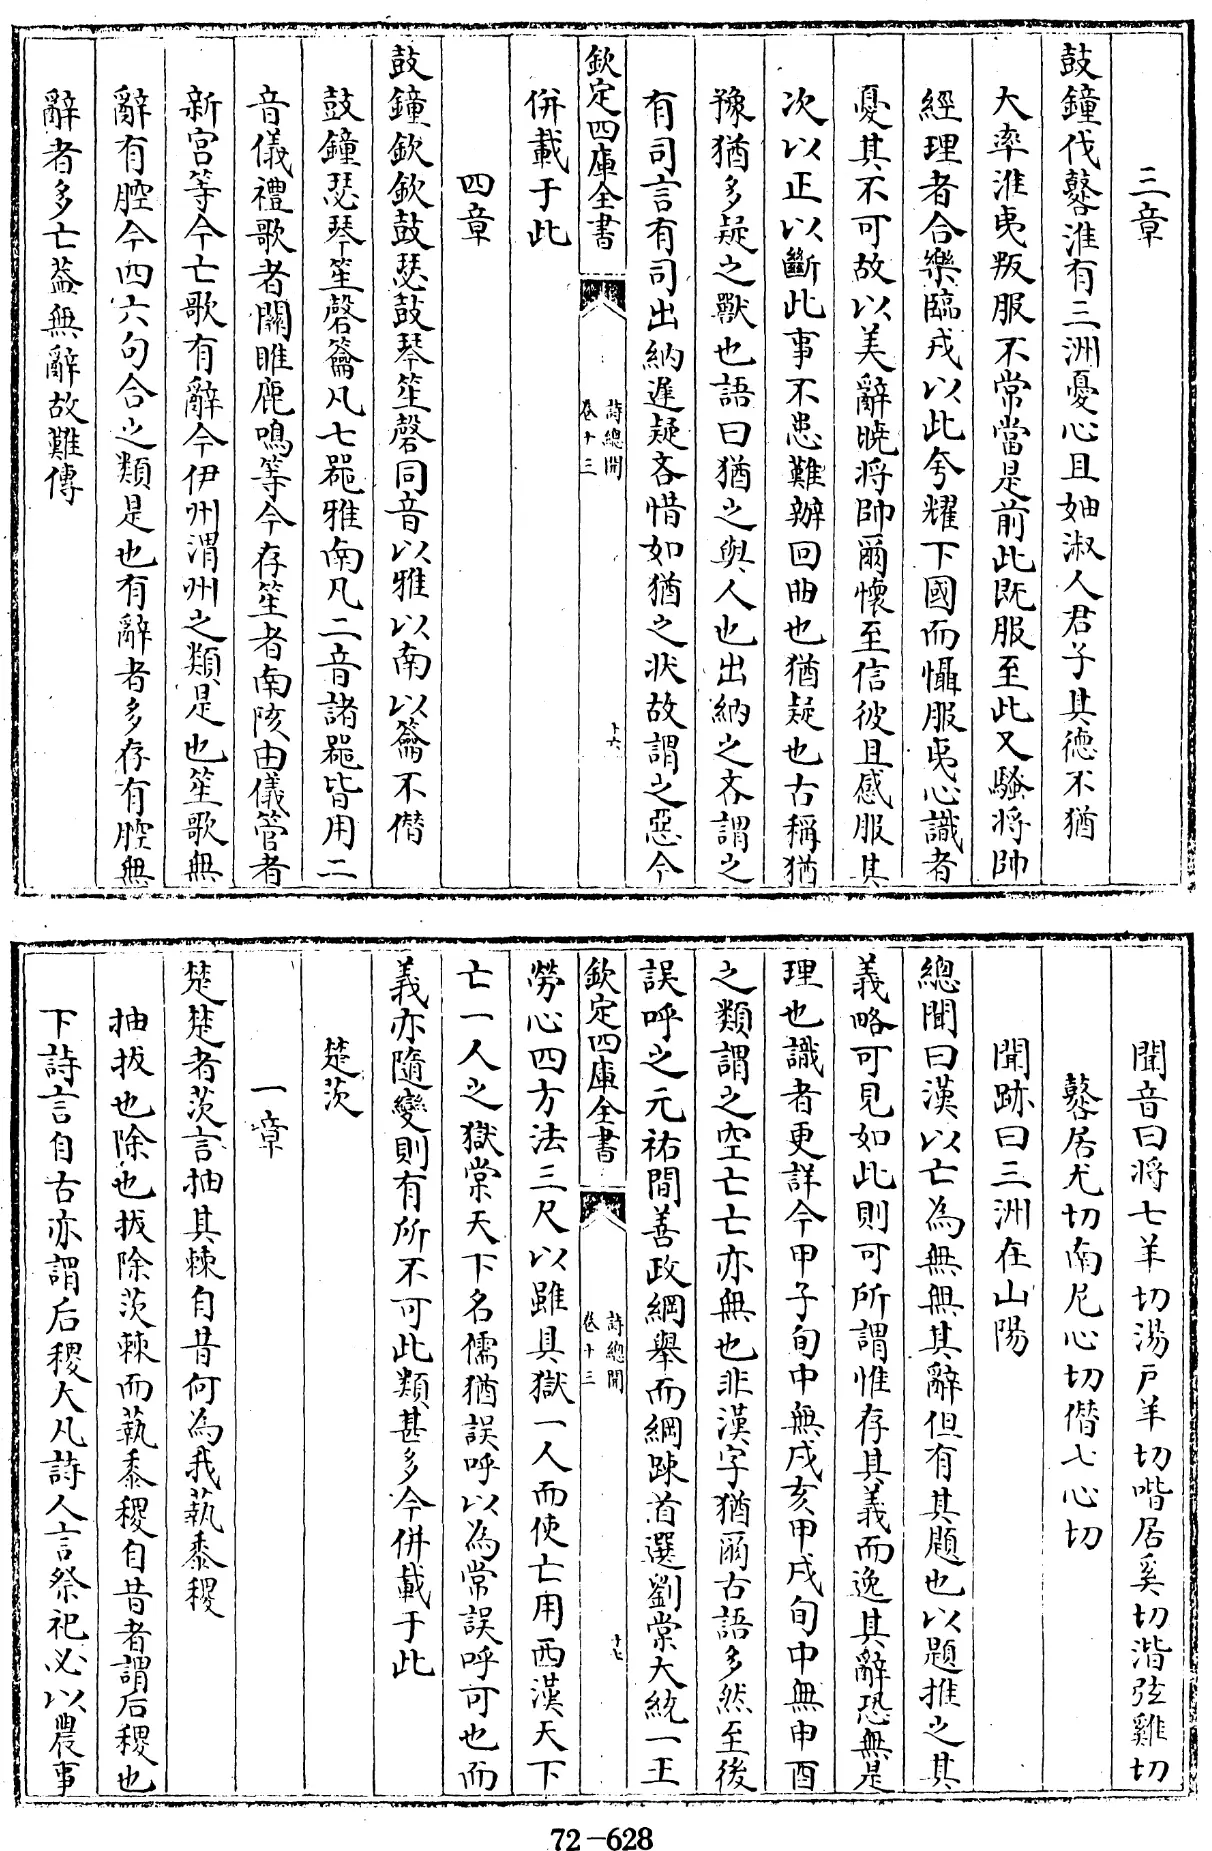 三章
鼓鐘伐鼛淮有三洲憂心且妯淑人君子其德不猶
大率淮夷叛服不常當是前此既服至此又騷將帥
經理者合樂臨戎以此夸耀下國而懾服夷心識者
憂其不可故以美辭曉將帥爾懷至信彼且感服其
次以正以斷此事不患難辦回曲也猶疑也古稱猶
豫猶多疑之獸也語曰猶之與人也出納之吝謂之
有司言有司出納遲疑吝惜如猶之狀故謂之惡今
欽定四庫全書
詩總聞
卷十三
十六
併載于此
四章
鼓鐘欽欽鼓瑟鼓琴笙磬同音以雅以南以籥不僭
鼓鐘瑟琴笙磬籥凡七器雅南凡二音諸器皆用二
音儀禮歌者關雎鹿鳴等今存笙者南陔由儀管者
新宮等今亡歌有辭今伊州渭州之類是也笙歌無
辭有腔今四六句合之類是也有辭者多存有腔無
辭者多亡葢無辭故難傳
聞音曰將七羊切湯戸羊切喈居奚切湝弦雞切
鼛居尤切南尼心切僭七心切
聞跡曰三洲在山陽
總聞曰漢以亡為無無其辭但有其題也以題推之其
義略可見如此則可所謂惟存其義而逸其辭恐無是
理也識者更詳今甲子旬中無戌亥甲戌旬中無申酉
之類謂之空亡亡亦無也非漢字猶爾古語多然至後
誤呼之元祐間善政綱舉而網踈首選劉棠大統一王
欽定四庫全書
詩總聞
卷十三
十七
勞心四方法三尺以雖具獄一人而使亡用西漢天下
亡一人之獄棠天下名儒猶誤呼以為常誤呼可也而
義亦隨變則有所不可此類甚多今併載于此
楚茨
一章
楚楚者茨言抽其棘自昔何為我蓺黍稷
抽拔也除也拔除茨棘而蓺黍稷自昔者謂后稷也
下詩言自古亦謂后稷大凡詩人言祭祀必以農事
72-628